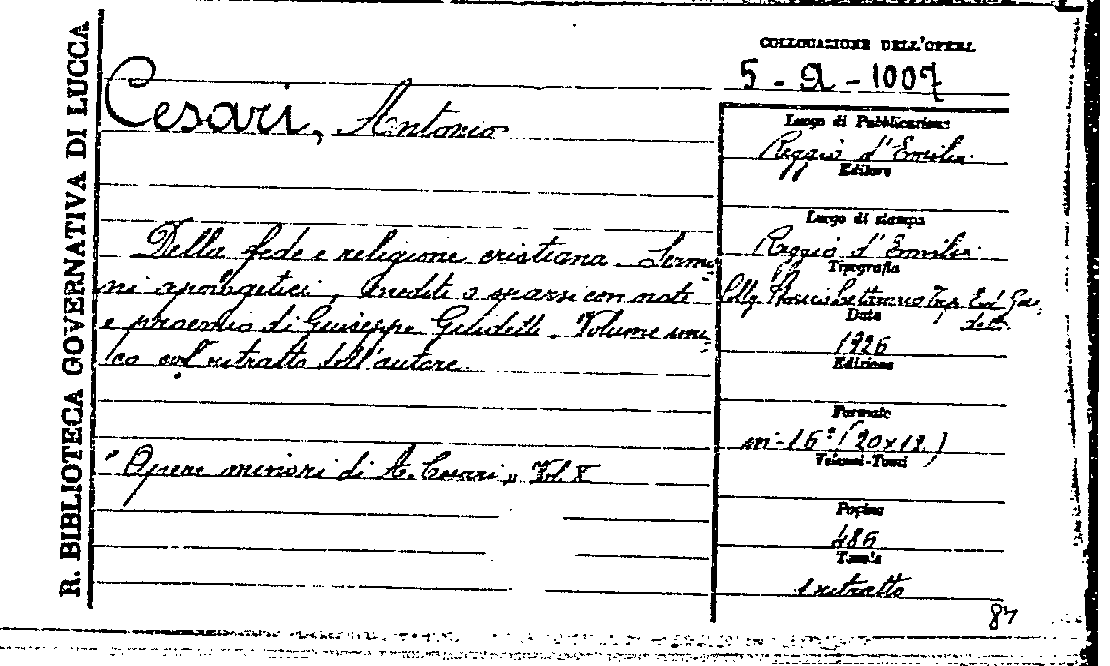 R. BIBLIOTECA GOVERNATIVA DI LUCCA
Cesari, Antonio
Della fede e religione cristiana. Sermo=
ni apologetici, inediti o sparsi con note
e proemio di Giuseppe Giudetti. Volume uni=
co col ritratto dell'autore.
" Opere minori di A. Cesari " Vol. X
COLLOCAZIONE DELL'OPERA
5 - Q - 1007
Luogo di Pubblicazione
Reggio d'Emilia
Editore
Luogo di stampa
Reggio d'Emilia
Tipografia
Tip. Ed. Gui=
Data
1926
Edizione
Formato
in-16° (20x12)
Volumi-Tomi
Pagine
486
Tavole
1 ritratto
87